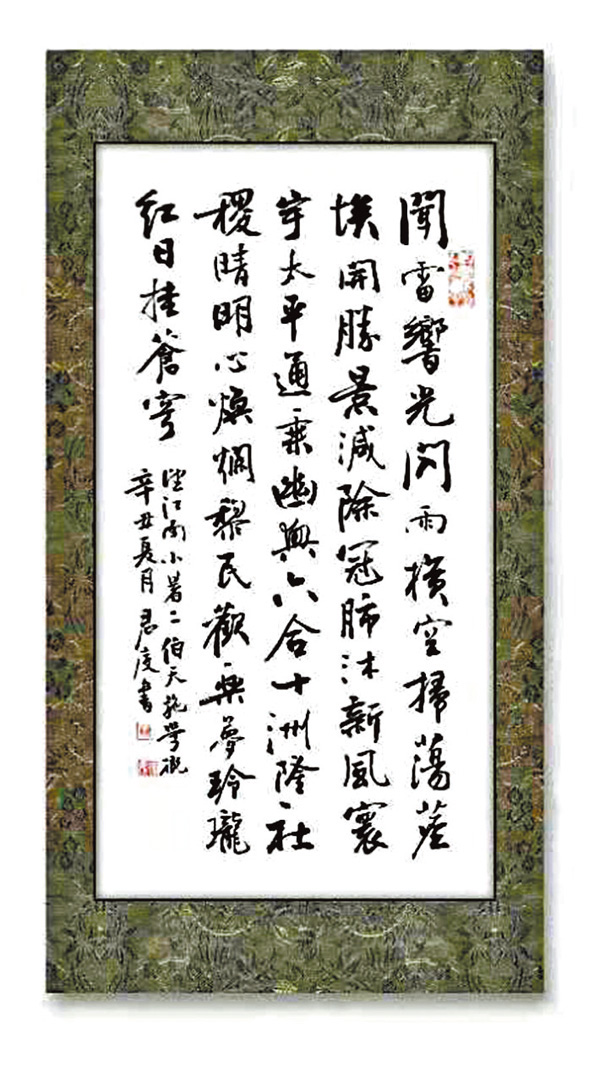 聞雷響光閃雨橫空掃蕩塵
埃開勝景減除冠肺沐新風寰
宇太平通乘幽興六合十洲隆社
稷晴明心煥爛黎民歡樂夢玲瓏
紅日挂蒼穹
望江南小暑二伯天施學概
辛丑夏月君度書